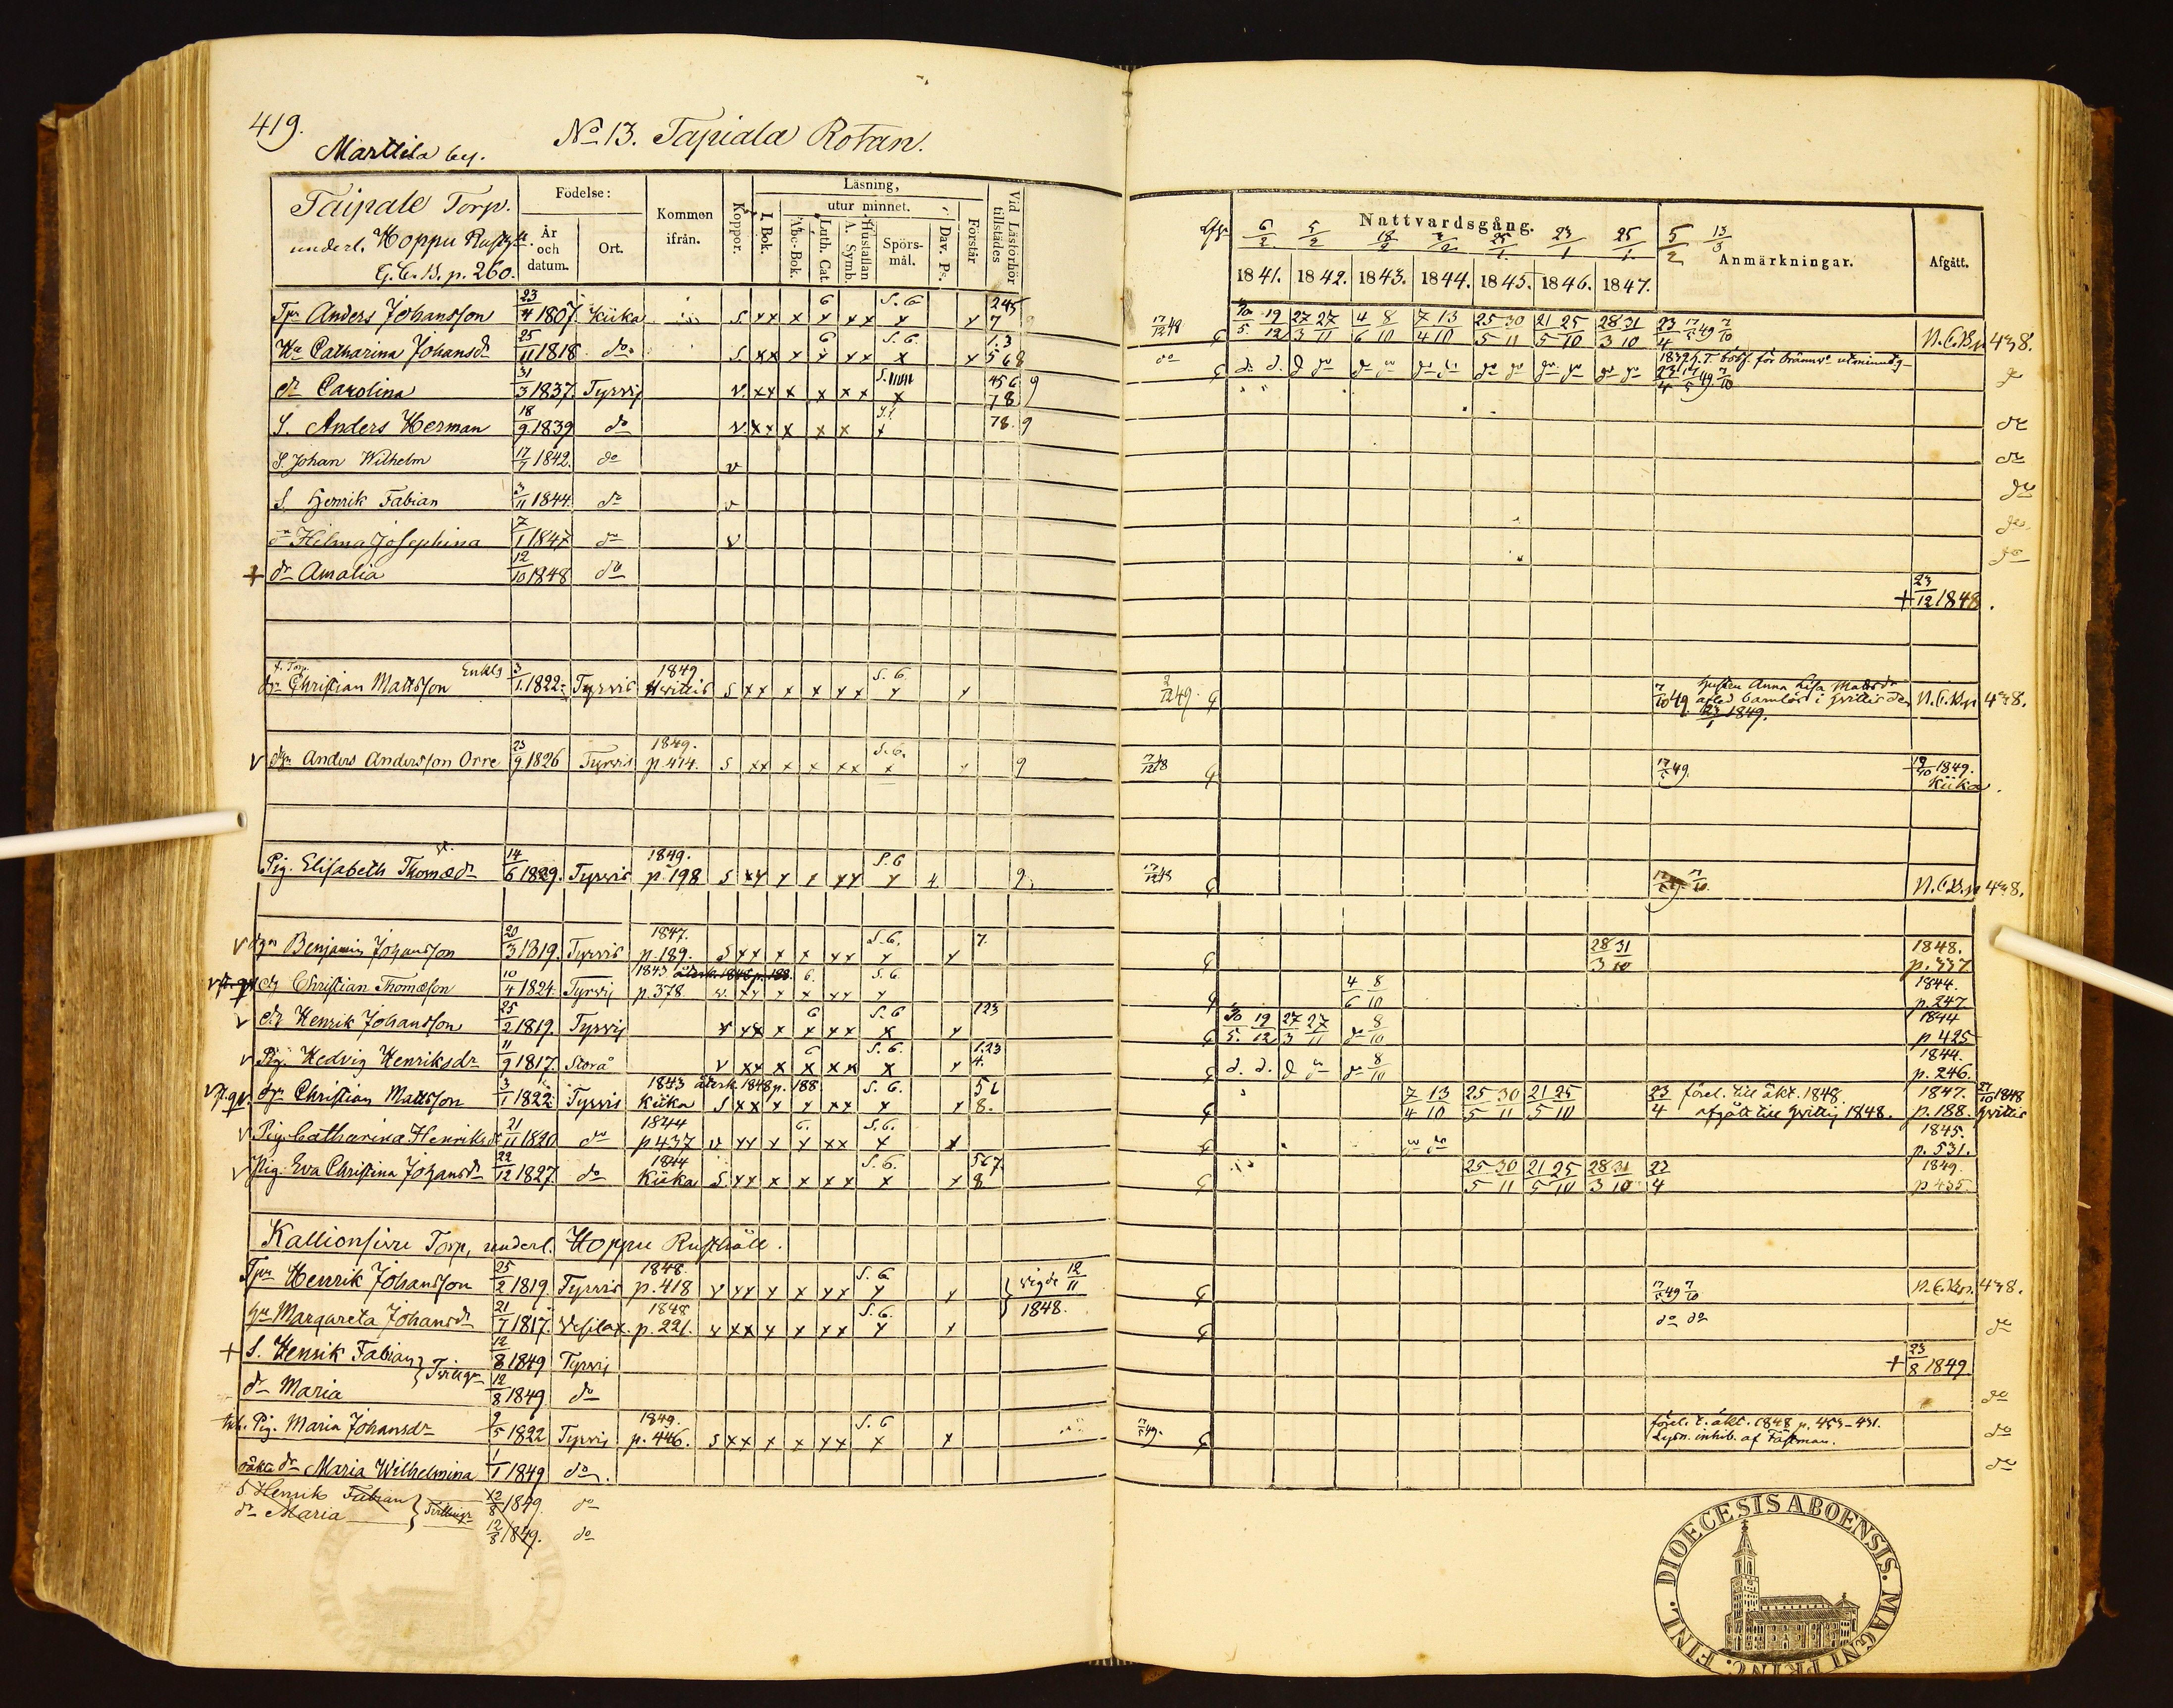 419.
Marttila by. No 13. Tapiala Rotan.
Taipale Torp.
underl. Hoppu Rusth.
G.C.B. p. 260.
Födelse:
År och datum.
Ort.
Kommen ifrån.
Koppor.
Läsning,
I. Bok.
utur minnet.
Abc-Bok.
Luth. Cat.
A. Symb.
Hustaflan
Spörs-mål.
Dav. Ps.
Förstår
Vid Läsförhör tillstädes
Nattvardsgång.
6/2 5/2 18/2 25/1 23/1 25/1 5/2 13/3
1841. 1842. 1843. 1844. 1845. 1846. 1847.
Anmärkningar.
Afgått.
Tpr Anders Johansson 23/4 1807 Kiika S. xx x x xx S. 6 x x 245 7 17/12 48 30/5 19/12 27/3 27/11 4/6 8/10 7/4 13/10 25/5 30/11 21/5 25/10 28/3 31/10 23/4 17/5 49 7/10 N.C.B. p 438.
Hu Catharina Johansdr 25/11 1818 do S. xx x x xx S. 6 x x 1.3 568 do d. d. d do do do do do do do do do do do
dr Carolina 31/3 1837. Tyrvis V. xx x x xx x 456 78 9 do
S. Anders Herman 18/9 1839 do V. xx x x x x 78. 9 do
S. Johan Wilhelm 17/7 1842. do v do
S. Henrik Fabian 3/11 1844. do v do
dr Hilma Josephina 7/1 1847 do v do
+ dr Amalia 12/10 1848 do + 23/12 1848.
f. Torp. dr Christian Mattsson Enkl. 3/1 1822. Tyrvis 1849 Hvittis S xx x x xx S. 6. x x 2/12 49. 7/10 49. Hustru Anna Lisa Mattsdr afled barnlös i Hvittis den 23/1 1849. N.C.B. p 438.
v dr Anders Andersson Orre 23/9 1826 Tyrvis 1849. p. 414. S xx x x xx S. 6. x x 9 17/12 48 17/5 49. 19/10 1849. Kiika.
Pig. Elisabeth Thomædr 14/6 1829. Tyrvis 1849. p. 198 S xx x x xx S. 6 x 9. 17/12 48 7/10. N.C.B. p 438.
v dr Benjamin Johansson 20/3 1819. Tyrvis 1847. p. 189. S xx x x xx S. 6. x x 7. 28/3 31/10 1848. p. 337
dr Christian Thomæson 10/4 1824. Tyrvis 1843 p. 378. v. xx x x xx S. 6. x 4/6 8/10 1844. p. 247.
v dr Henrik Johansson 25/2 1819. Tyrvis v xx x x xx S. 6 x x 123 30/5 19/12 27/3 27/11 do 8/10 1844 p 425
v Pig. Hedvig Henriksdr 11/9 1817. Storå v xx x x xx S. 6. x x 1.23 4. d. d. d do do 8/10 1844. p. 246.
dr Christian Mattsson 3/1 1822 Tyrvis 1843 Kiika återk. 1848 p. 188 S xx x x xx S. 6. x x 56 8. 7/4 13/10 25/5 30/11 21/5 25/10 23/4 förel. till äkt. 1848. afgått till Hvittis 1848. 1847. p. 188. 27/10 1848 Hvittis
v Pig. Catharina Henriksdr 21/11 1820 do 1844 p 437 v xx x x xx S. 6. x x do do 1845. p. 531.
v Pig. Eva Christina Johansdr 22/12 1827 do 1844 Kiika S xx x x xx S. 6. x x 567 8 25/5 30/11 21/5 25/10 28/3 31/10 23/4 1849. p 435.
Kallionsivu Torp, underl. Hoppu Rusthåll.
Tpr Henrik Johansson 25/2 1819. Tyrvis 1848. p. 418 v xx x x xx S. 6 x x vigde 12/11 1848. 17/5 49 7/10 N.C.B. p. 438.
Hu Margareta Johansdr 21/7 1817. Vesilax. 1848 p. 221. v xx x x xx S. 6. x x do do do
+ S. Henrik Fabian 12/8 1849 Tyrvis + 23/8 1849.
dr Maria } Tvilligr 12/8 1849. do do
Inh. Pig. Maria Johansdr 9/5 1822 Tyrvis 1849. p. 446. S xx x x xx S. 6 x x 17/5 49. förel. t. äkt. 1848 p. 453-431. Lysn. inhib. af Fästman. do
oäkta dr Maria Wilhelmina 1/1 1849 do. do
S Henrik Fabian 12/8 1849. do
dr Maria } Tvillingr 12/8 1849. do
DIOECESIS ABOENSIS. MAGNI PRINC. FINL.